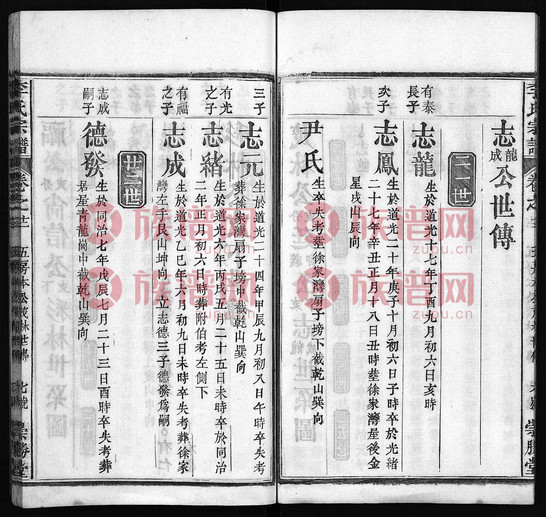 龍成
志公世傳
有泰長子
志龍
生於道光十七年丁酉九月初六日亥時
次子
志鳳
生於道光二十年庚子十月初六日子時卒於光緒
二十七年辛丑正月十八日丑時塟徐家灣屋後金
星戌山辰向
尹氏
生卒失考塟徐家灣扇子塝下截乾山巽向
三子
志元
生於道光二十四年甲辰九月初八日午時卒失考
葬徐家灣扇子塝中截乾山巽向
有光之子
志緒
生於道光六年丙戌五月二十五日未時卒於同治
二年正月初六日時葬附伯考左側下
有福之子
志成
生於道光乙巳年六月初九日未時卒失考葬徐家
灣左手艮山坤向 立志德三子德發爲嗣
廿二世
志成嗣子
德發
生於同治七年戊辰七月二十三日酉時卒失考葬
居屋青龍嘴中截乾山巽向
李氏宗譜
卷之廿二
崇勝堂
族譜网